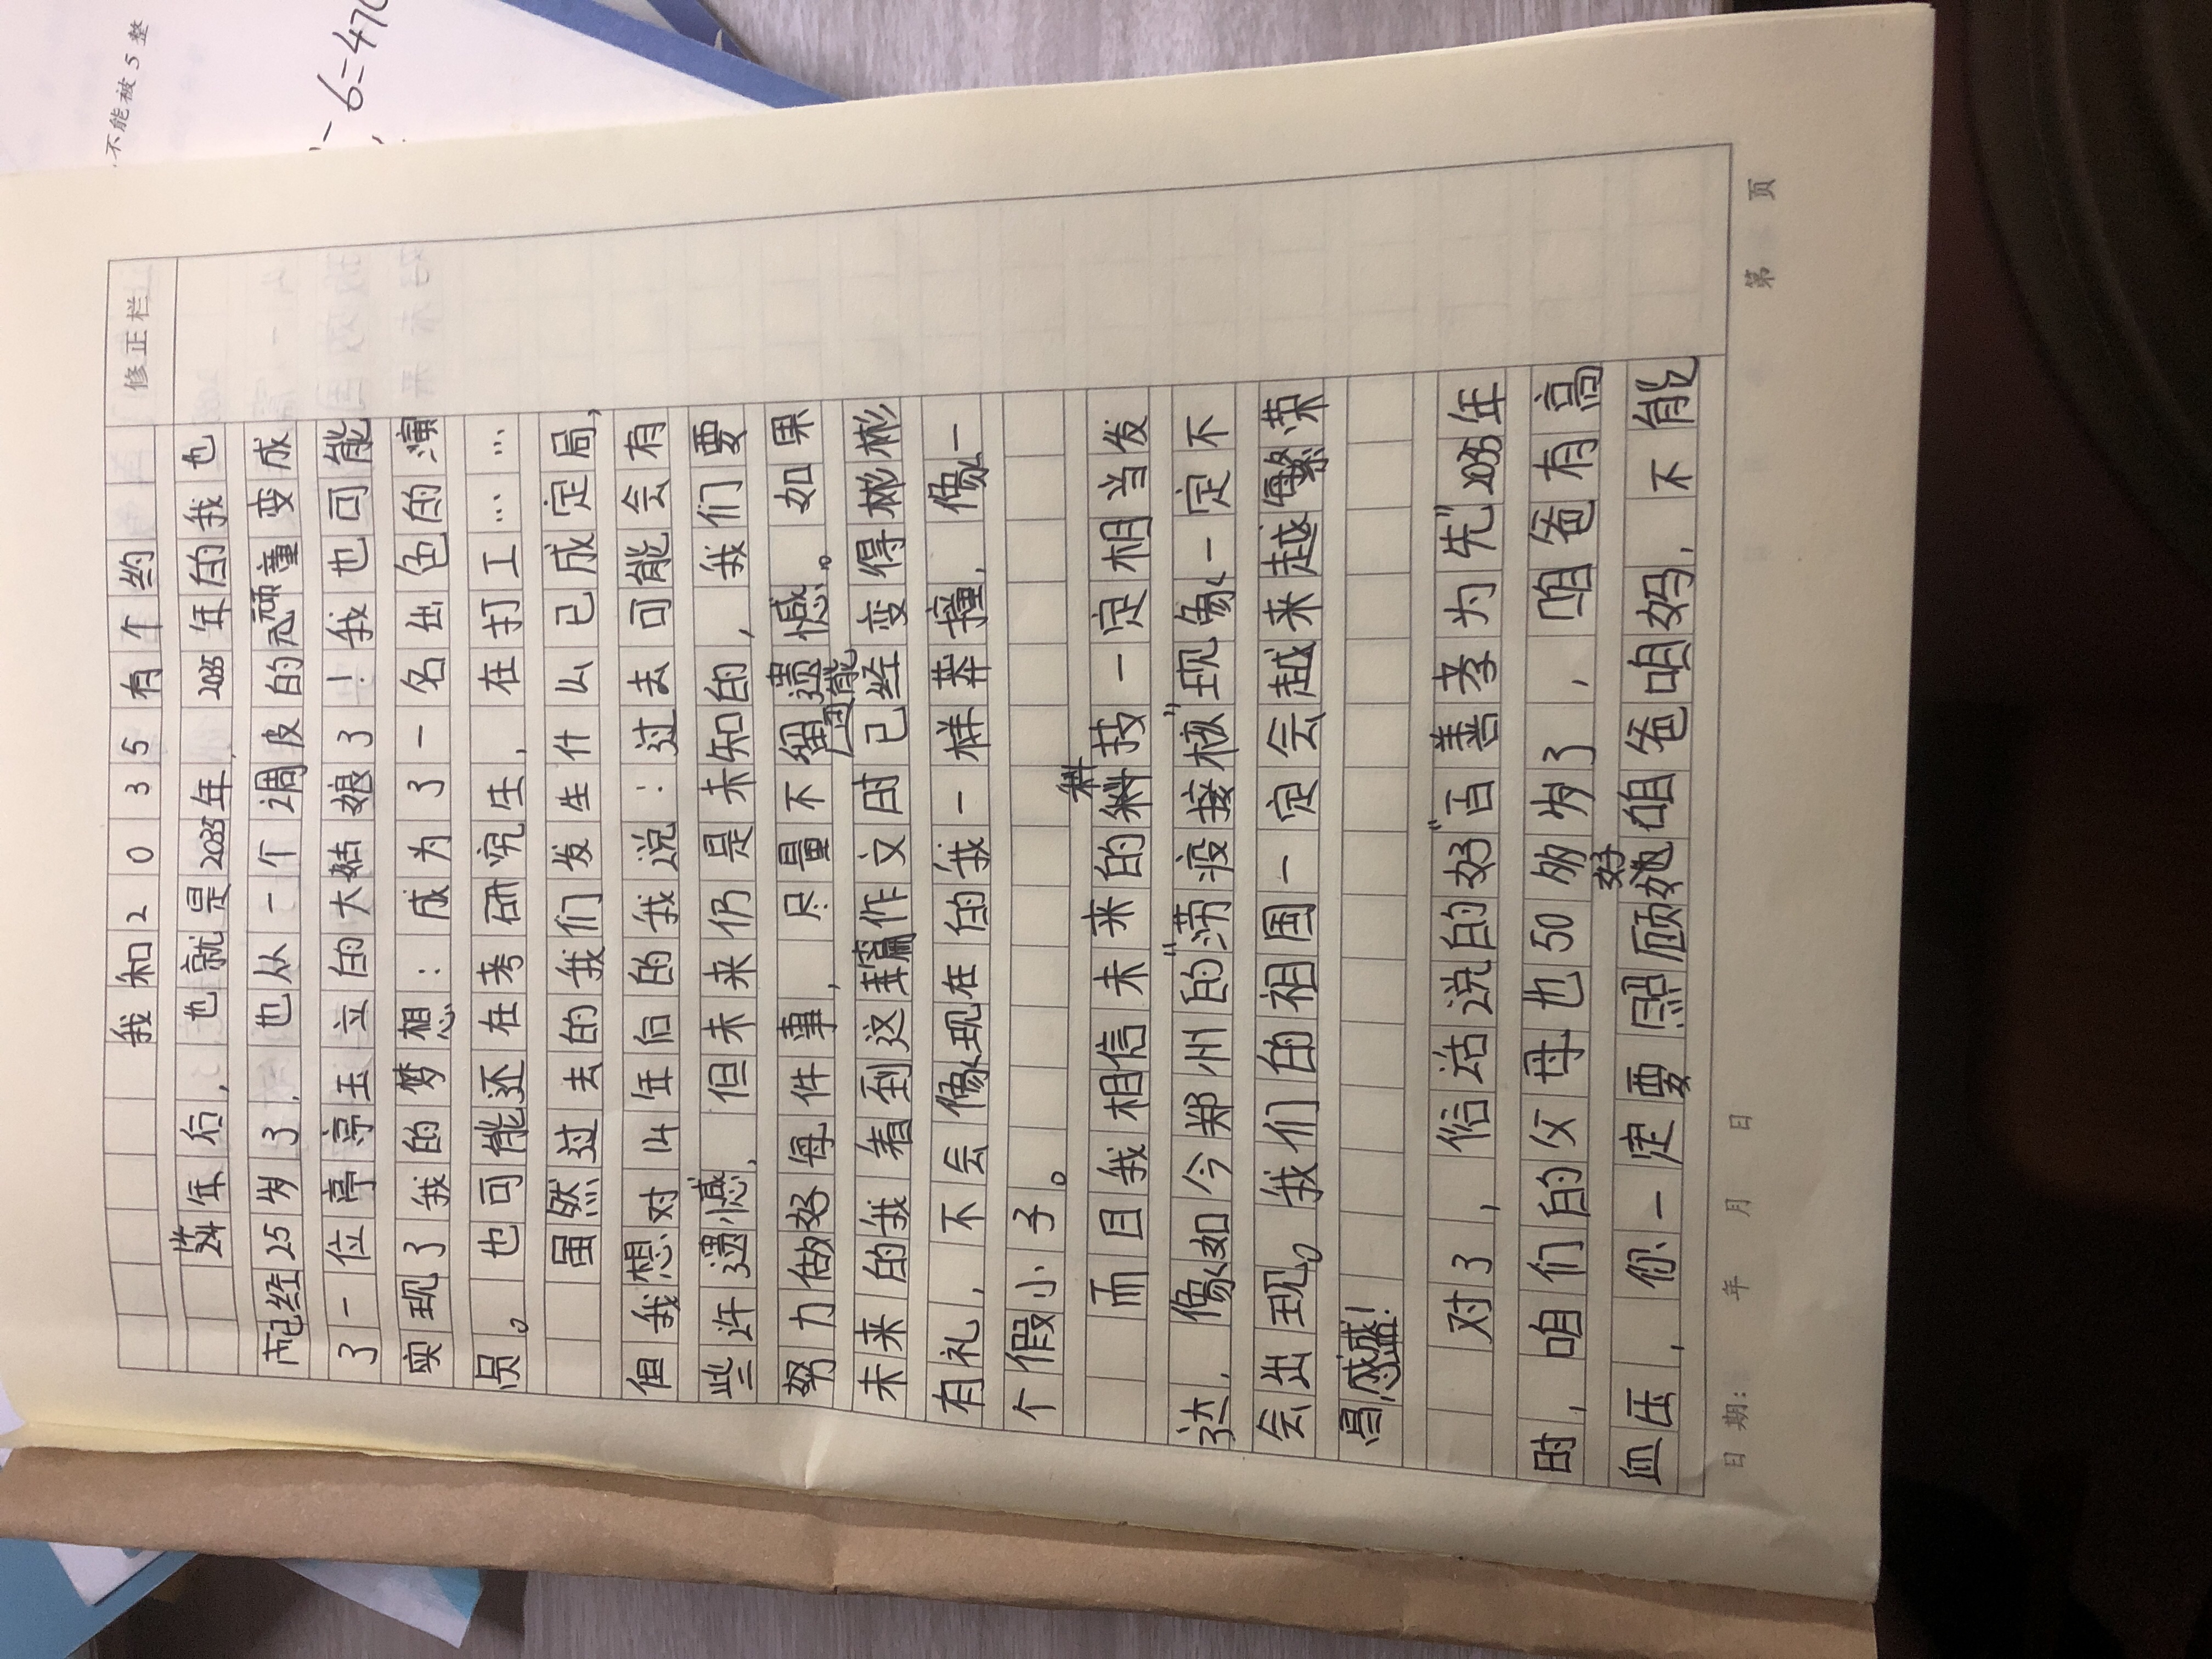 不能被5整
6=470
修正栏
我和2035有个约
14年后，也就是2035年，2035年的我也
已经25岁了，也从一个调皮的顽童变成
了一位亭亭玉立的大姑娘了！我也可能
实现了我的梦想：成为了一名出色的演
员。也可能还在考研究生，在打工……
虽然过去的我们发生什么已成定局，
但我想对14年后的我说：过去可能会有
些许遗憾，但未来仍是未知的，我们要
努力做好每件事，尽量不留遗憾。如果
未来的我看到这篇作文时可能已经变得彬彬
有礼，不会像现在的我一样莽撞，像一
个假小子。
而且我相信未来的科技一定相当发
达，像如今郑州的“涝疫接核”现象一定不
会出现。我们的祖国一定会越来越繁荣
昌盛！
对了，俗话说的好“百善孝为先”2035年
时，咱们的父母也50多岁了，咱爸有高
血压，你一定要照顾好咱爸咱妈，不能
日期： 年 月 日
第 页